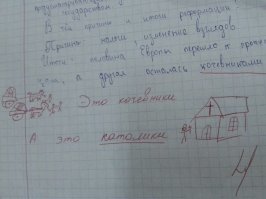 государством
В чём причины и итоги реформации?
Причины: изменение взглядов
Итоги: половина Европы перешло к проте
, а другая осталась кочевниками
Это кочевники
А это католики